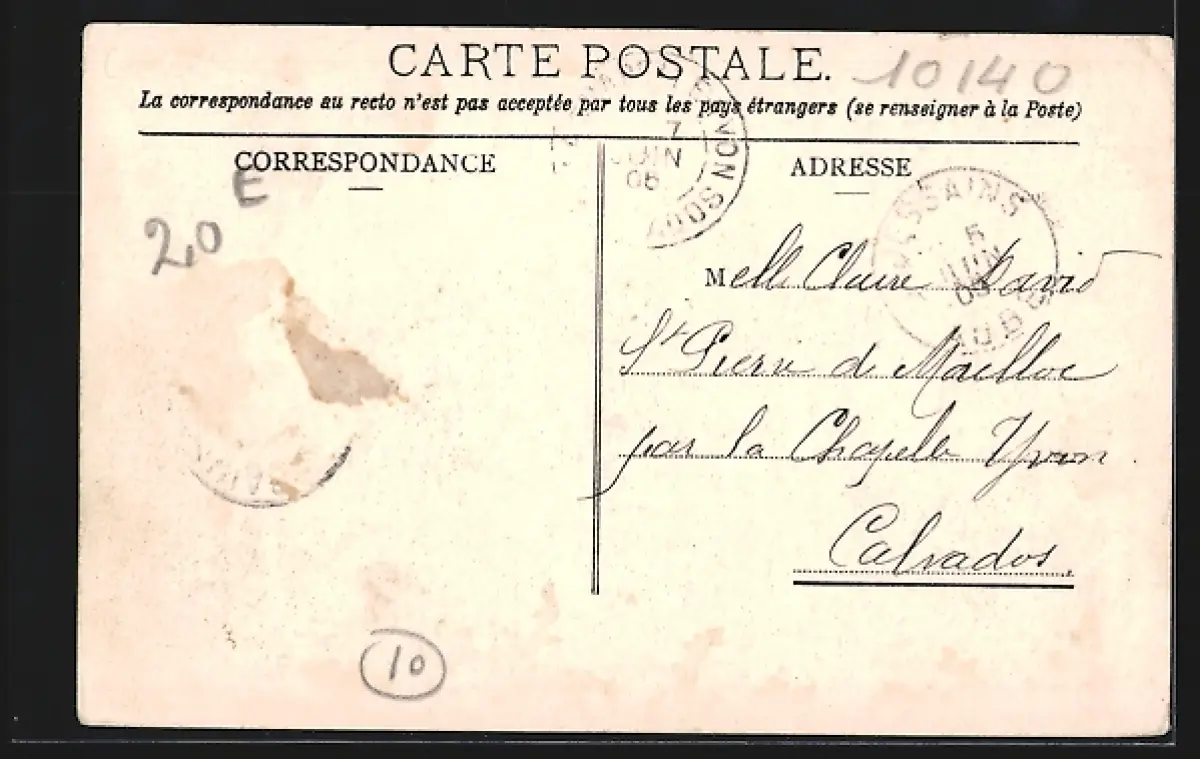 CARTE POSTALE.
10140
La correspondance au recto n'est pas acceptée par tous les pays étrangers (se renseigner à la Poste)
CORRESPONDANCE
ADRESSE
20 E
YVON
7
JUIN
06
SSAINS
5
JUIN
AUBE
Melle Claire David
St Pierre de Mailloc
par la Chapelle Yvon
Calvados
10